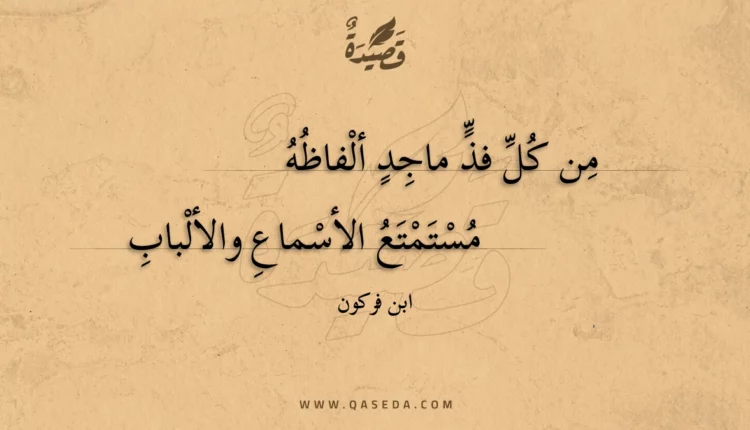 قَصِيدَةٌ
مِن كُلِّ فذٍّ ماجِدٍ ألْفاظُهُ
مُسْتَمْتَعُ الأسْماعِ والألْبابِ
ابن فركون
WWW.QASEDA.COM